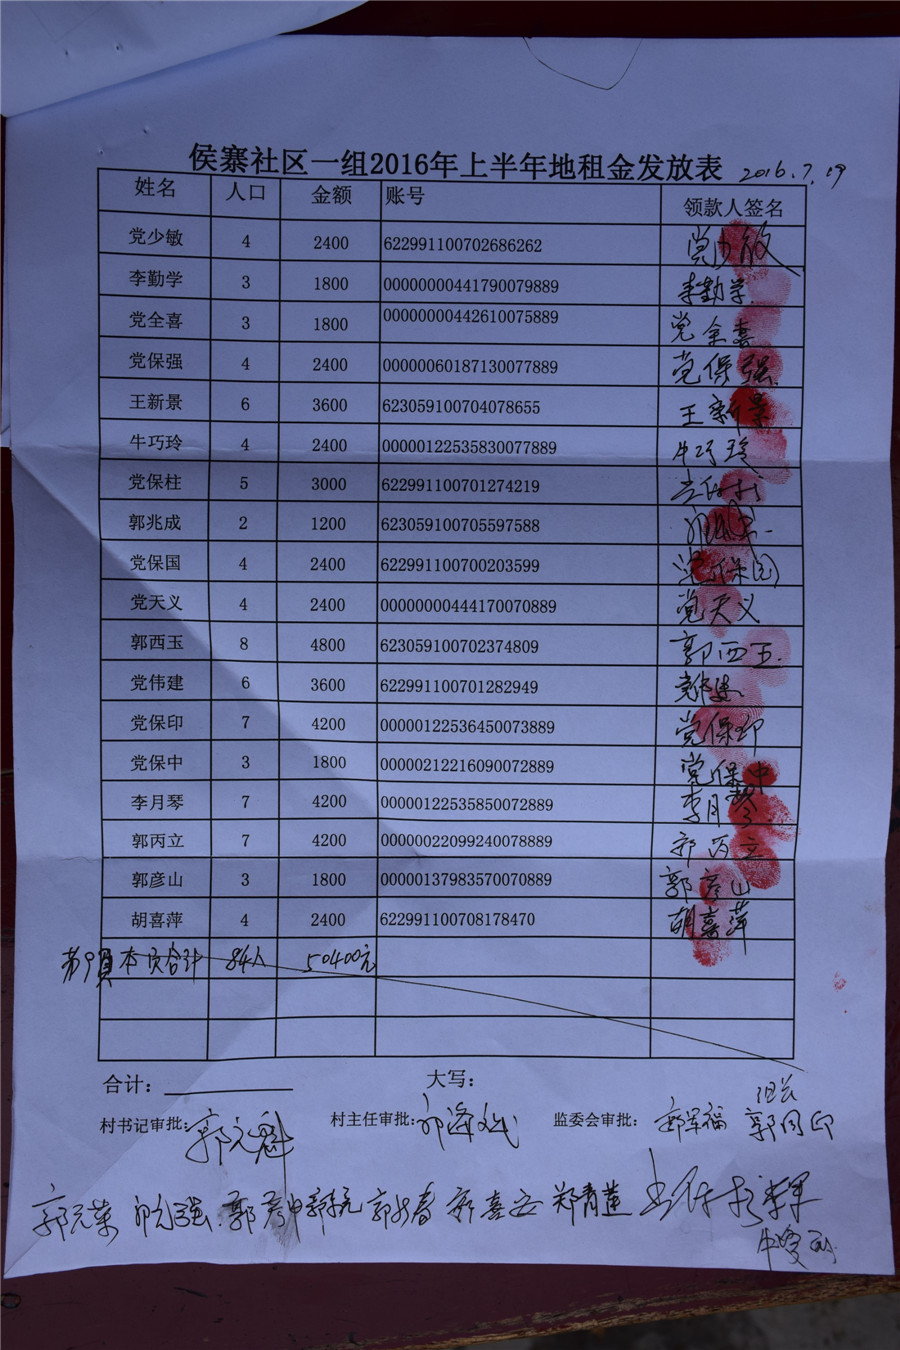 侯寨社区一组2016年上半年地租金发放表 2016.7.19
姓名 人口 金额 账号 领款人签名
党少敏 4 2400 622991100702686262 党少敏
李勤学 3 1800 00000000441790079889 李勤学
党全喜 3 1800 00000000442610075889 党全喜
党保强 4 2400 00000060187130077889 党保强
王新景 6 3600 623059100704078655 王新景
牛巧玲 4 2400 00000122535830077889 牛巧玲
党保柱 5 3000 622991100701274219 党保柱
郭兆成 2 1200 623059100705597588
党保国 4 2400 622991100700203599 党保国
党天义 4 2400 00000000444170070889 党天义
郭西玉 8 4800 623059100702374809 郭西玉
党伟建 6 3600 622991100701282949 党伟建
党保印 7 4200 00000122536450073889 党保印
党保中 3 1800 00000212216090072889 党保中
李月琴 7 4200 00000122535850072889 李月琴
郭丙立 7 4200 00000022099240078889 郭丙立
郭彦山 3 1800 00000137983570070889 郭彦山
胡喜萍 4 2400 622991100708178470 胡喜萍
第9页 本页合计 84人 50400元
合计： 大写：
组长
村书记审批： 郭元魁 村主任审批： 监委会审批： 郭军福 郭同印
郭元荣 郭喜安 郑青莲 李军